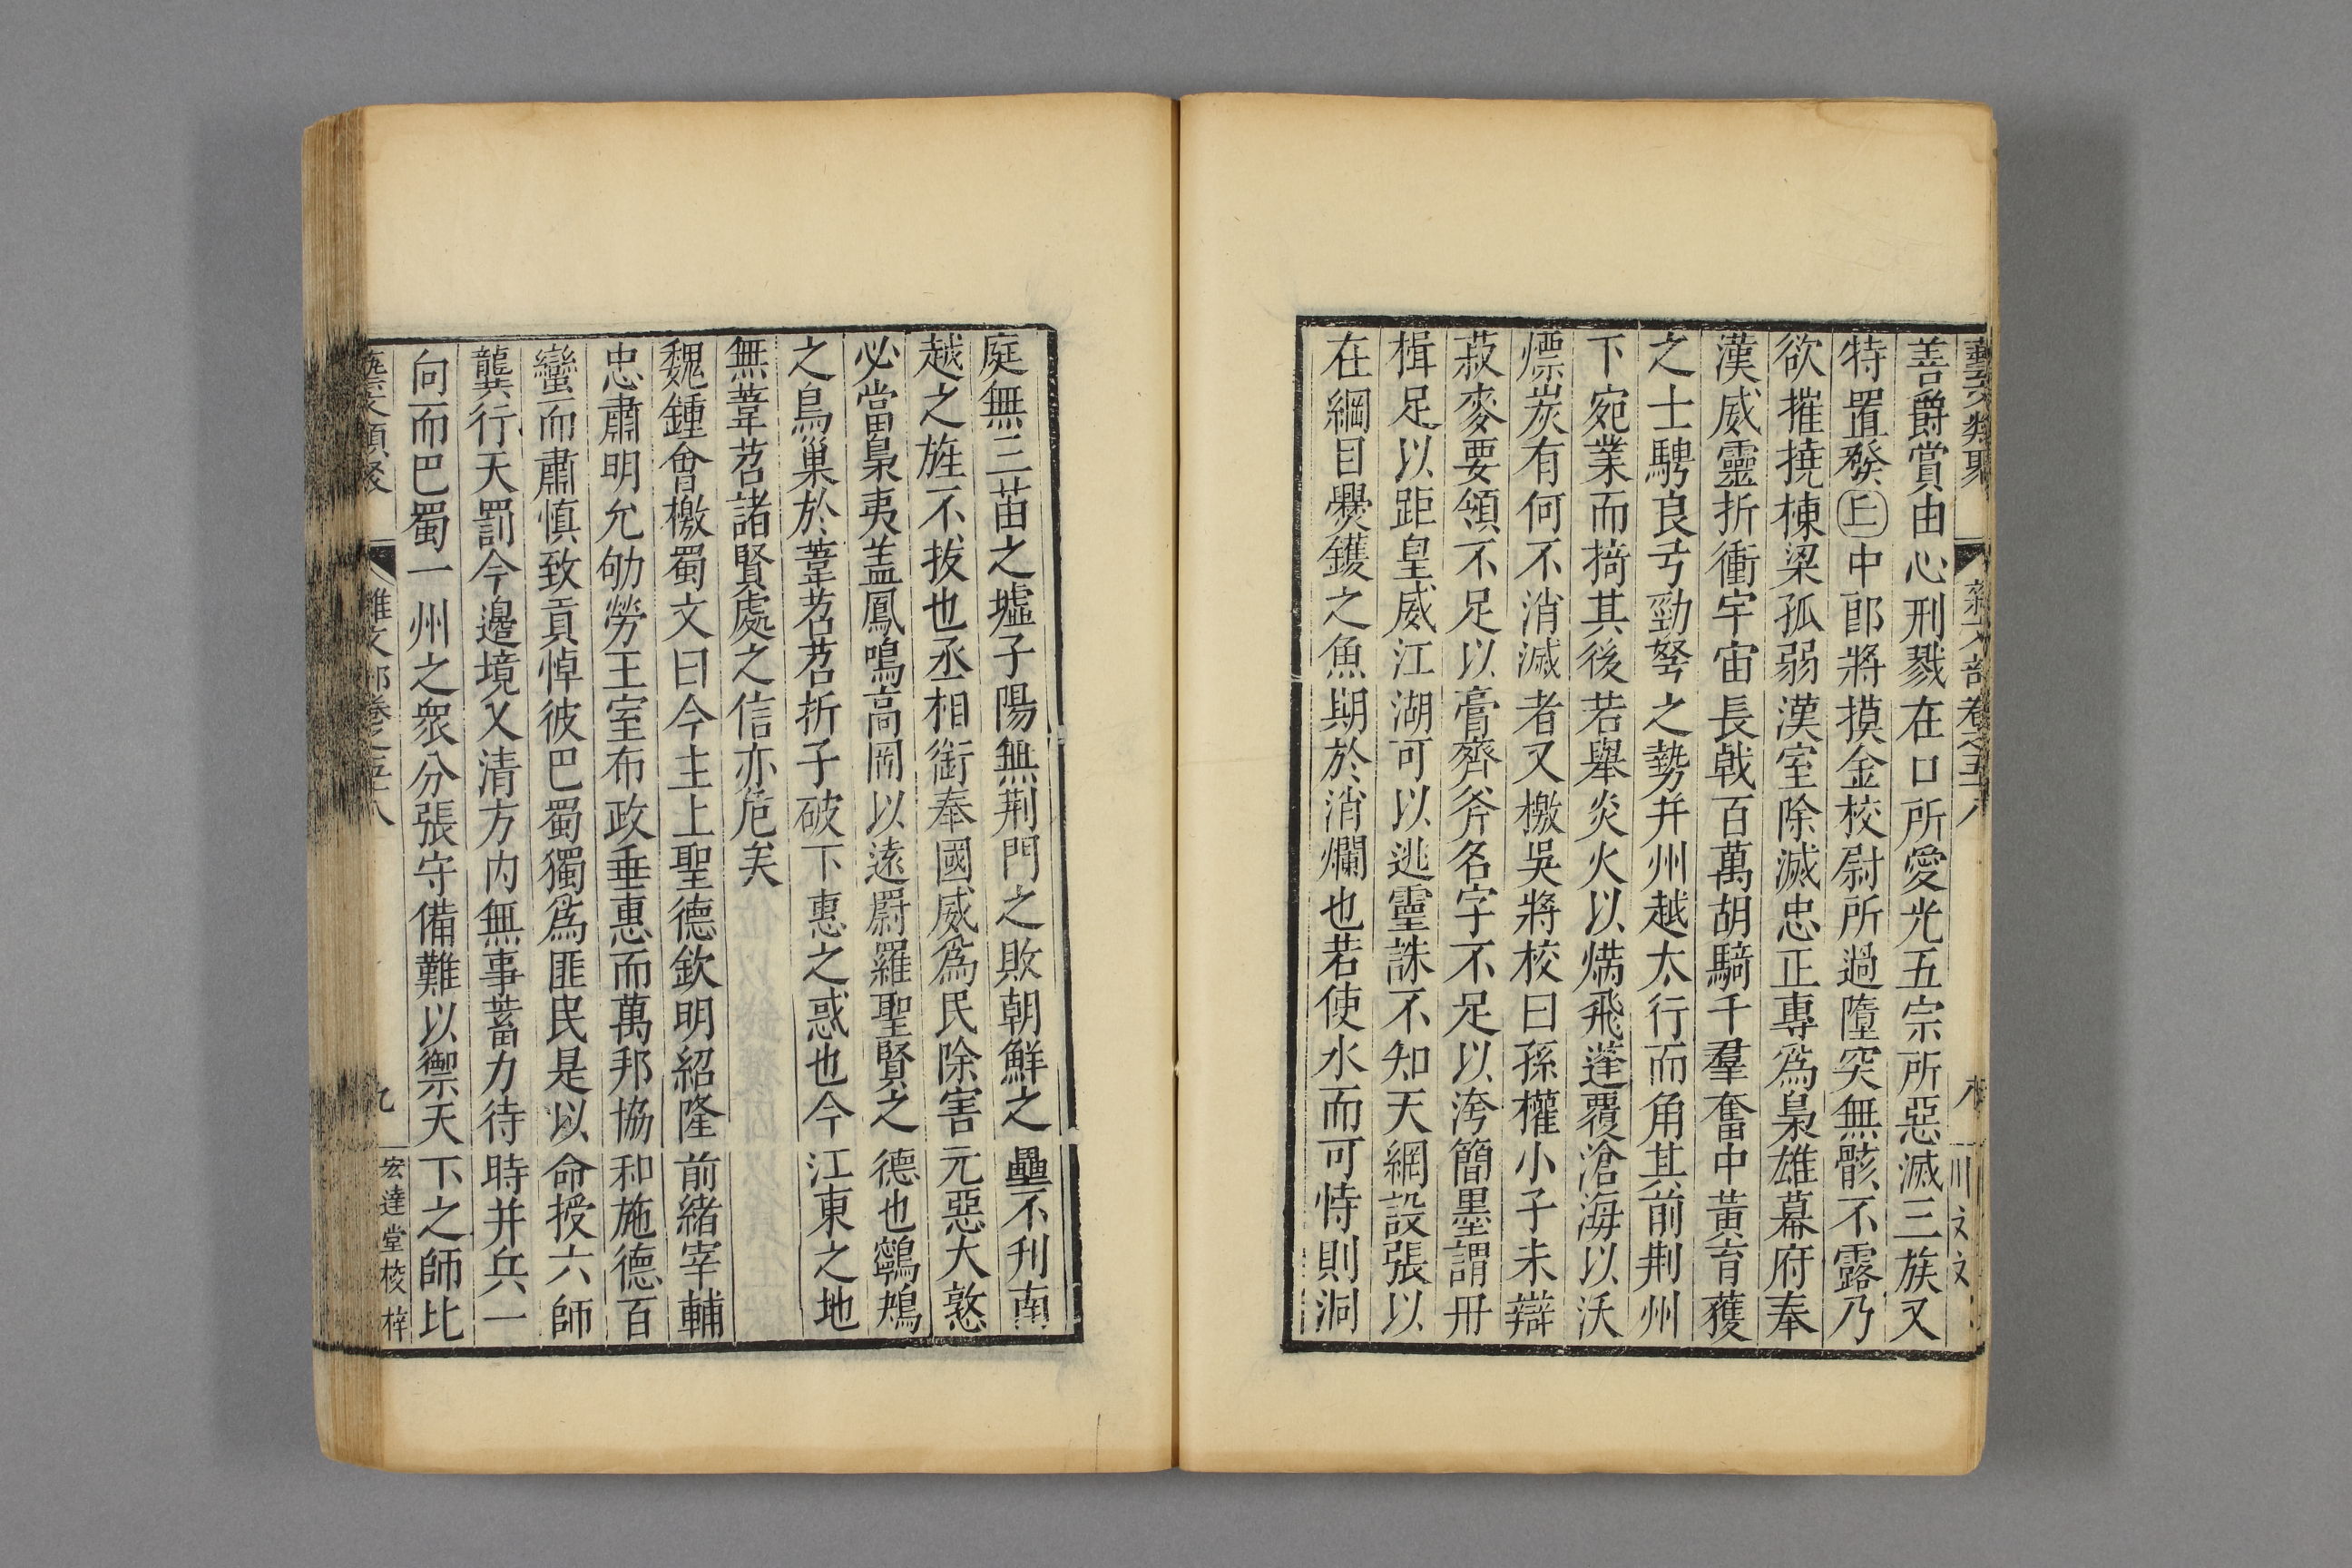 藝文類聚 雜文部卷之五十八
善爵賞由心刑戮在口所愛光五宗所惡滅三族又
特置發丘中郎將摸金校尉所過隳突無骸不露乃
欲摧撓棟梁孤弱漢室除滅忠正專爲梟雄幕府奉
漢威靈折衝宇宙長戟百萬胡騎千羣奮中黃育獲
之士騁良弓勁弩之勢并州越太行而角其前荆州
下宛業而掎其後若舉炎火以焫飛蓬覆滄海以沃
熛炭有何不消滅者又檄吳將校曰孫權小子未辯
菽麥要領不足以膏齊斧名字不足以洿簡墨謂冊
楫足以距皇威江湖可以逃靈誅不知天網設張以
在綱目爨鑊之魚期於消爛也若使水而可恃則洞
庭無三苗之墟子陽無荆門之敗朝鮮之壘不刋南
越之旌不拔也丞相銜奉國威爲民除害元惡大憝
必當梟夷盖鳳鳴高岡以遠罻羅聖賢之德也鸋鴂
之鳥巢於葦苕苕折子破下惠之惑也今江東之地
無葦苕諸賢處之信亦危矣
魏鍾會檄蜀文曰今主上聖德欽明紹隆前緒宰輔
忠肅明允劬勞王室布政垂惠而萬邦協和施德百
蠻而肅慎致貢悼彼巴蜀獨爲匪民是以命授六師
龔行天罰今邊境乂清方内無事蓄力待時并兵一
向而巴蜀一州之衆分張守備難以禦天下之師比
藝文類聚 雜文部卷之五十八 九 宏達堂校梓